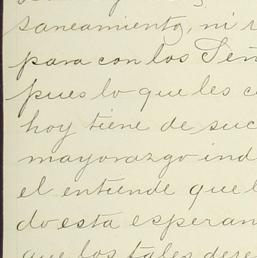 saneamiento, ni
para con los Señ
pues lo que les c
hoy tiene de suc
mayorazgo ind
el entiende que l
do esta esperan
que los tales dese